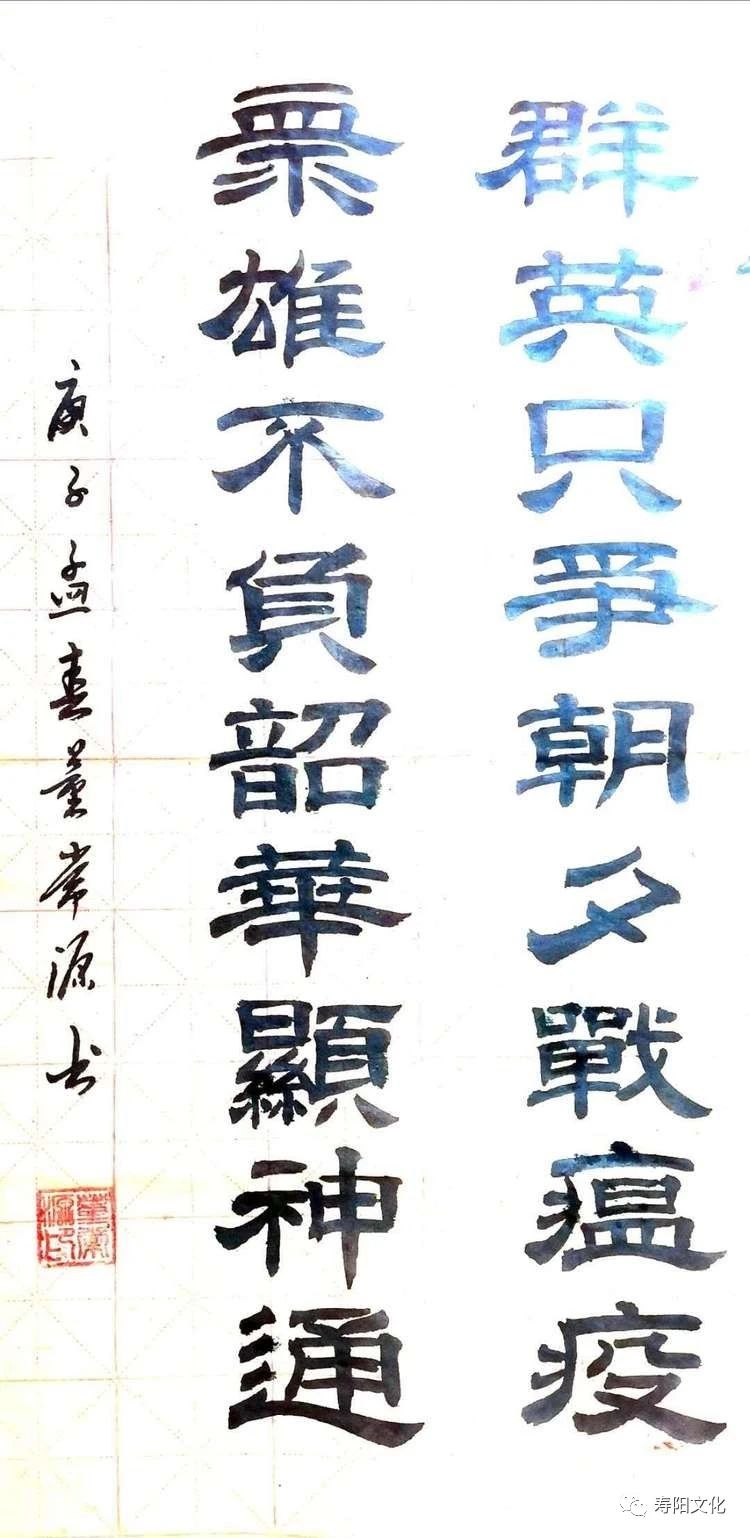 群英只爭朝夕戰瘟疫
眾雄不負韶華顯神通
庚子孟春董常源书
董常源印
寿阳文化